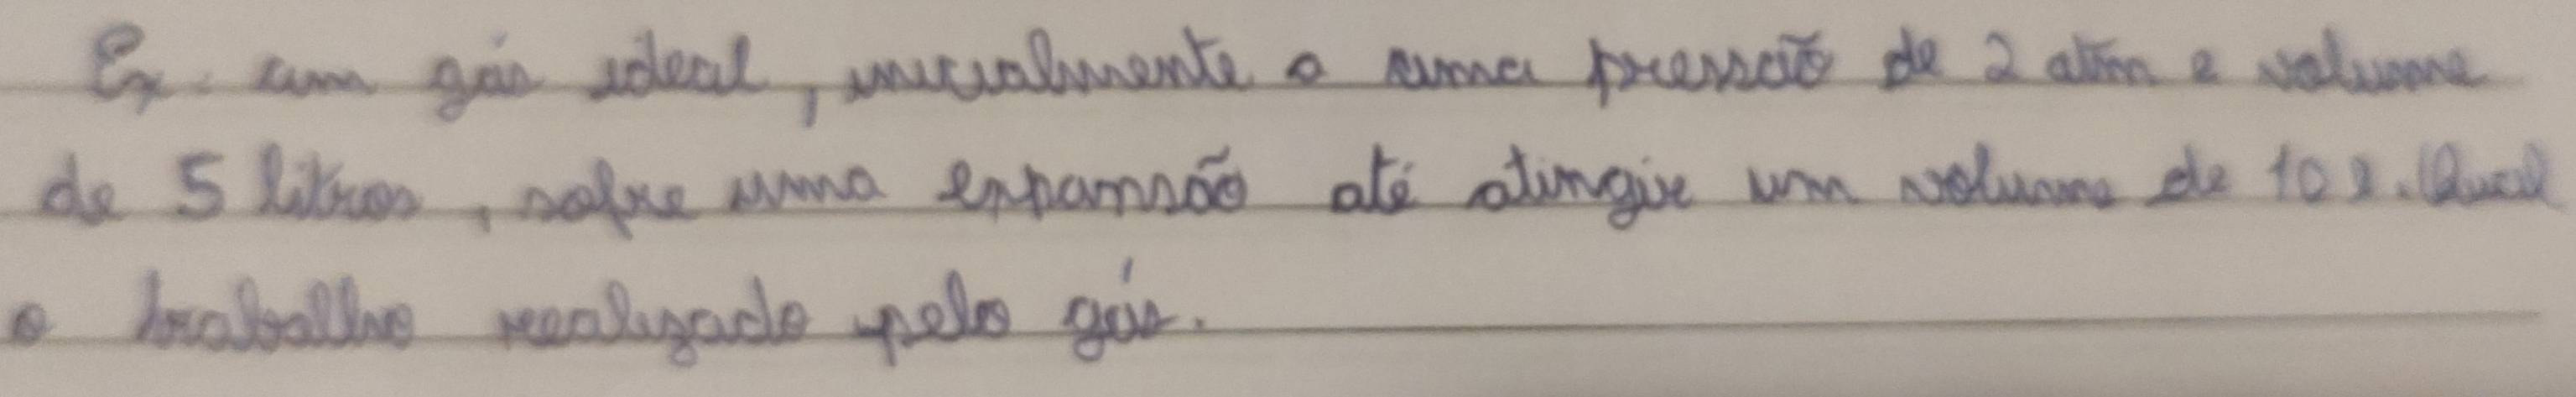 Ex. um gás ideal, inicialmente a uma pressão de 2 atm e volume
de 5 litros, sofre uma expansão até atingir um volume de 10 l. Qual
o trabalho realizado pelo gás.